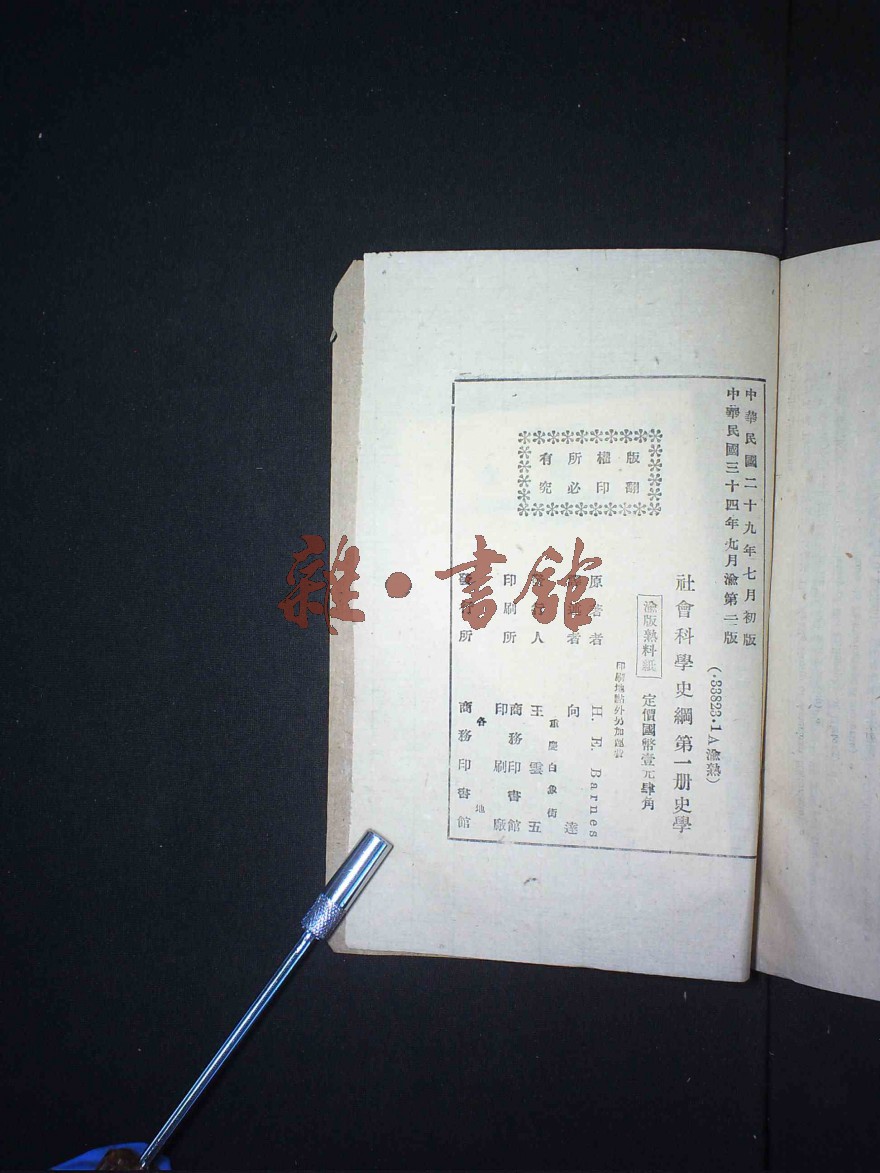 中華民國二十九年七月初版
中華民國三十四年九月渝第二版
(·33823·1A渝熟)
社會科學史綱第一册史學
渝版熟料紙 定價國幣壹元肆角
印刷地點外另加運費
版權所有
翻印必究
原著者 H. E. Barnes
者 向達
重慶白象街
發行人 王雲五
印刷所 商務印書館
印刷廠
各地
發行所 商務印書館
雜·書館